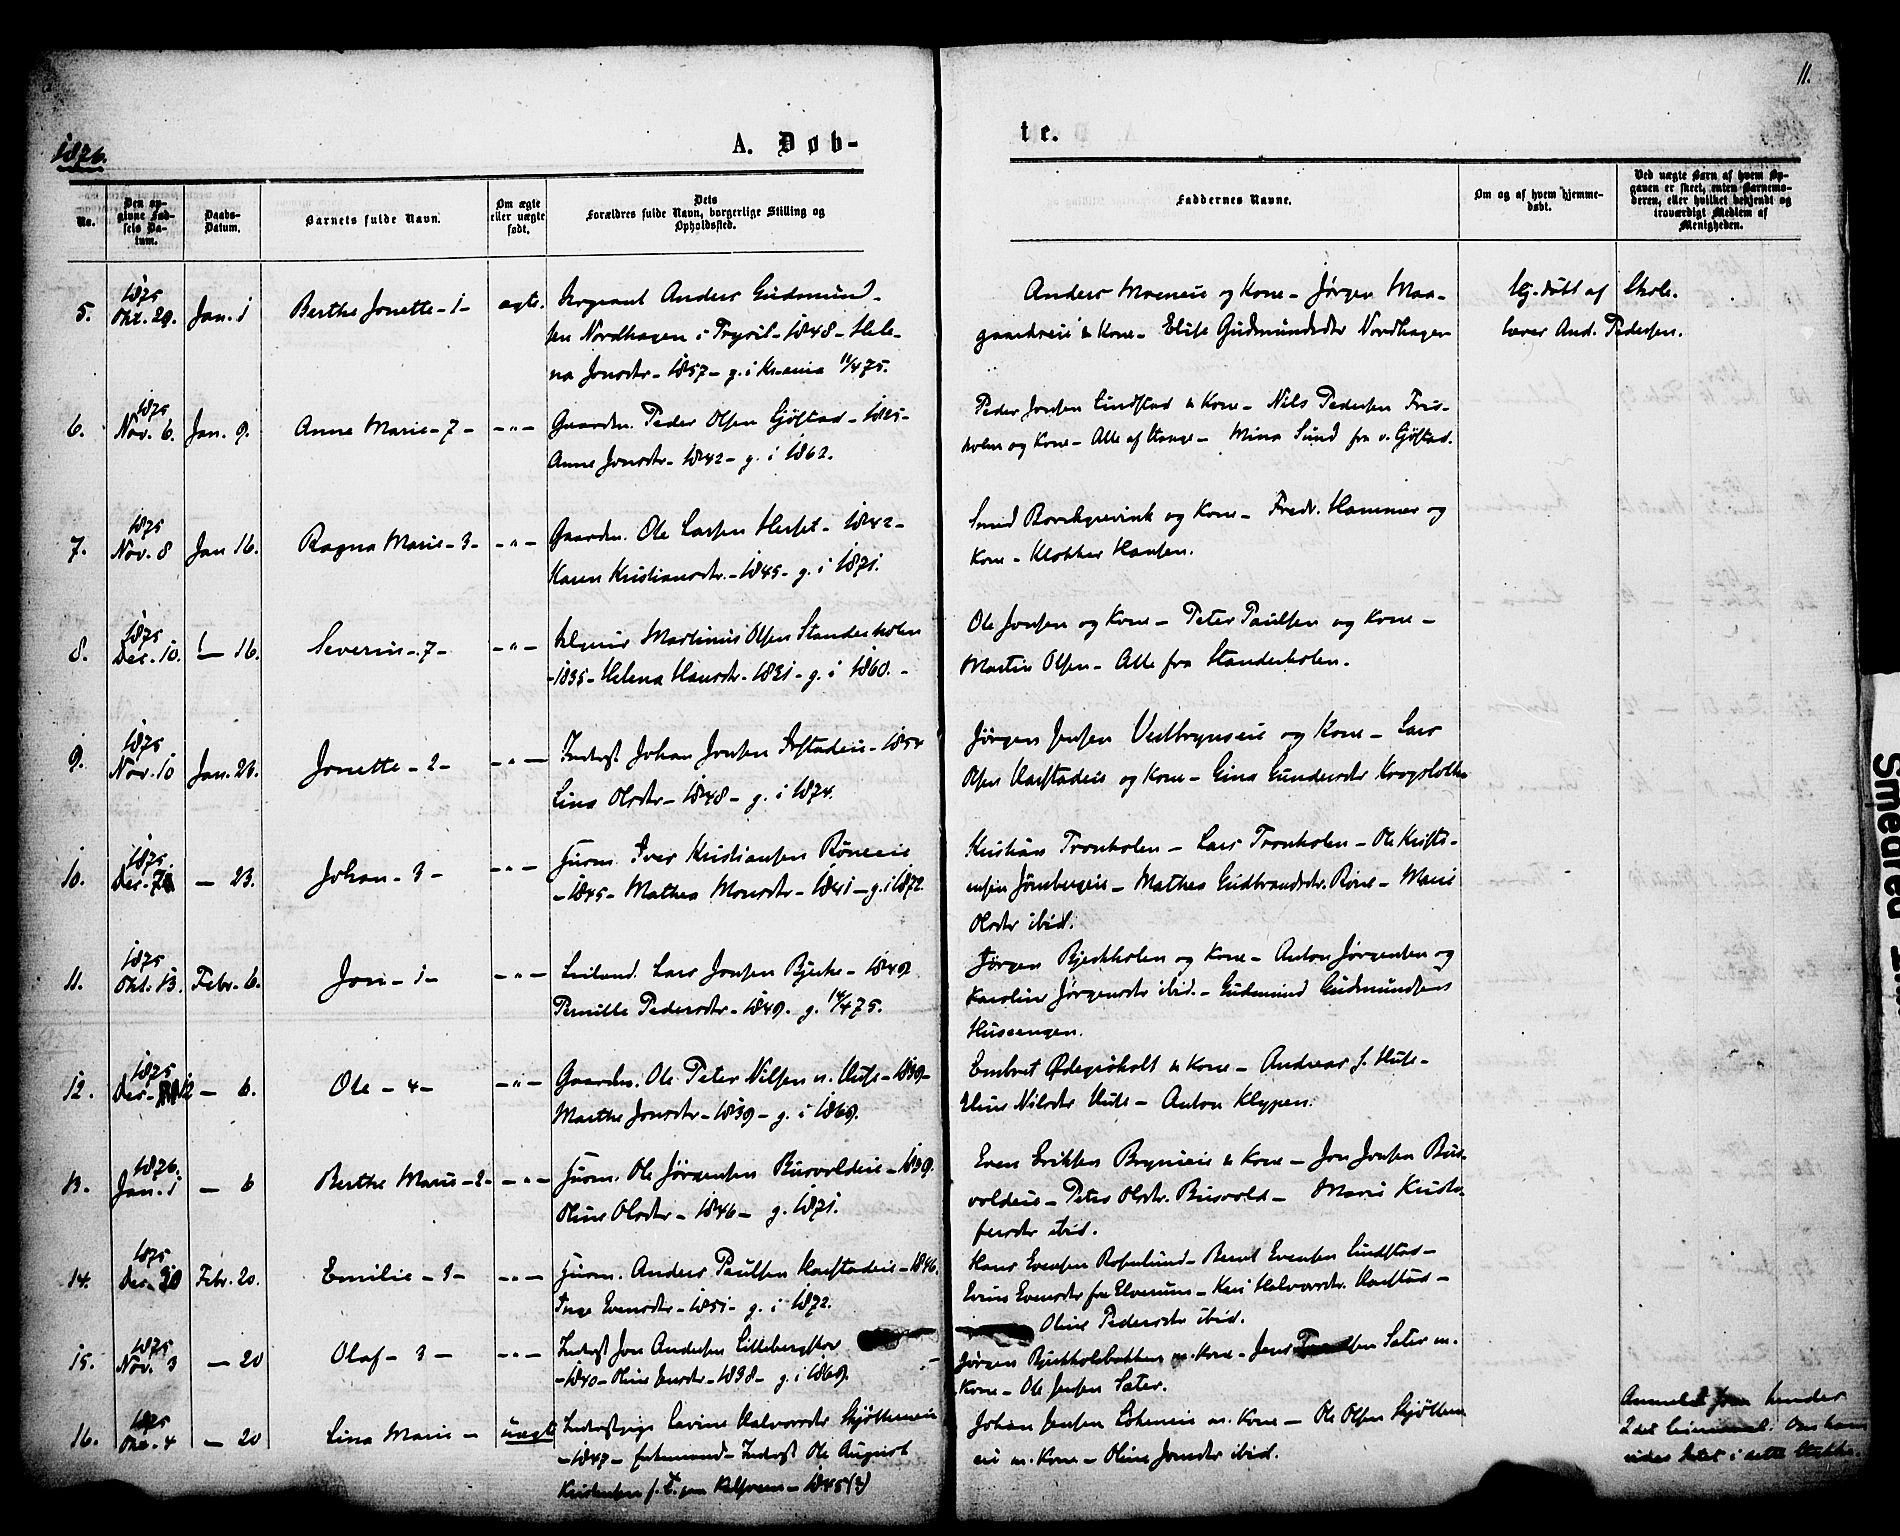 1876.
A. Døb-
te.
11.
No.
Den op-
givne Fød-
sels Da-
tum.
Daabs-
Datum.
Barnets fulde Navn.
Om ægte
eller uægte
født.
Dets
Forældres fulde Navn, borgerlige Stilling og
Opholdssted.
Faddernes Navne.
Om og af hvem hjemme-
døbt.
Ved uægte Barn af hvem Op-
gaven er skeet, enten Barnemo-
deren, eller hvilket bekjendt og
troværdigt Medlem af
Menigheden.
1875
5. Okt. 29. Jan. 1 Berthe Jonette - 1 - ægte. Sergeant Anders Gudmund-
sen Nordhagen i Trysil - 1848 - Hele-
na Jonsdtr - 1857 - g. i Kr.ania 11/4 75.
Anders Moeneie og Kone - Jørgen Maa-
gaardseie & Kone - Elise Gudmundsdtr Nordhagen
hj. døbt af Skole-
lærer And. Pedersen.
1875
6. Nov. 6. Jan. 9. Anne Marie - 7 - - " - Gaardm. Peder Olsen Gjøstad - 1825 -
Anne Jonsdtr - 1842 - g. i 1862.
Peder Jonsen Lindstad & Kone - Nils Pedersen Frus-
holen og Kone - Alle af Stange - Mina Sund fra v. Gjøstad.
1875
7. Nov. 8 Jan 16. Ragna Marie - 3 - - " - Gaardm. Ole Larsen Herset - 1842 -
Karen Kristiansdtr. - 1845 - g. i 1871.
Smed Borchgrevink og Kone - Fredr. Hammer og
Kone - Klokker Hansen.
1875
8. Dec. 10. - 16. Severin - 7 - - " - Martinus Olsen Standerholen
- 1835 - Helena Hansdtr - 1831 - g. i 1860. -
Ole Jonsen og Kone - Peter Paulsen og Kone -
Martin Olsen - Alle fra Standerholen.
1875
9. Nov. 10 Jan. 23. Jonette - 2 - - " - Inderst Johan Jonsen - 1854
Lina Olsdtr - 1848 - g. i 1874.
Jørgen Jensen Vestbynseie og Kone - Lars
Olsen Harstadeie og Kone - Gina Gundersdtr
1875.
10. Dec. - 23. Johan - 3 - - " - Husm. Iver Kristiansen Røneeie
- 1845 - Mathea Monsdtr - 1841 - g. i 1872.
Kristian Tronholen - Lars Tronholen - Ole Kristi-
ansen Jønsbergeie - Mathea Gudbrandsdtr. Røne - Marie
Olsdtr ibid.
1875
11. Okt. 13. Febr. 6. Jon - 1 - - " - Leilænd. Lars Jonsen Bjerke - 1849
Pernille Pedersdtr - 1849. g. 14/4 75.
Jørgen Bjerkholen og Kone - Anton Jørgensen og
Karoline Jørgensdtr ibid. - Gudmund Gudmundsens
Huseengen.
1875
12. Dec. 12 - 6. Ole - 4 - - " - Gaardm. Ole Peter Nilsen n. Huse - 1839 -
Marthe Jonsdtr - 1839 - g. i 1869.
Embret Ødegaardholt & Kone - Andreas s. Huse -
Eline Nilsdtr Huse - Anton Klypen.
1876.
13. Jan. 1 - 6 Berthe Marie - 2 - - " - Husm. Ole Jørgensen Busvoldeie - 1839.
Oline Olsdtr - 1846 - g. 1871.
Even Eriksen Bryneeie & Kone - Jon Jonsen Bus-
voldeie - Petra Olsdtr. Busvold - Marie Kristo-
fersdtr ibid.
1875
14. Dec. 30 Febr. 20. Emilie - 3 - - " - Husm. Anders Paulsen Harstadeie - 1846.
Inge Evensdtr - 1851 - g. i 1872.
Hans Evensen Rosenlund - Bernt Evensen Lindstad -
Evine Evensdtr fra Elverum - Kari Halvorsdtr. Harstad -
Oline Pedersdtr ibid.
1875
15. Nov. 3 - 20 Olaf - 3 - - " - Inderst Jon Andersen Lillebergskor
- 1840 - Oline Jensdtr - 1838 - g. i 1869.
Jørgen Bjerkholsbakken m. Kone - Jens Sæter m.
Kone - Ole Jensen Sæter.
1875
16. Okt. 4 - 20 Lina Marie - uægte Inderstpige Lavine Halvorsdtr
- 1847 - Inderst Ole August
Kristensen - 1845(?)
Johan Jensen m. Kone - Ole Olsen
eie m. Kone - Oline Jonsdtr ibid.
hendes
2det